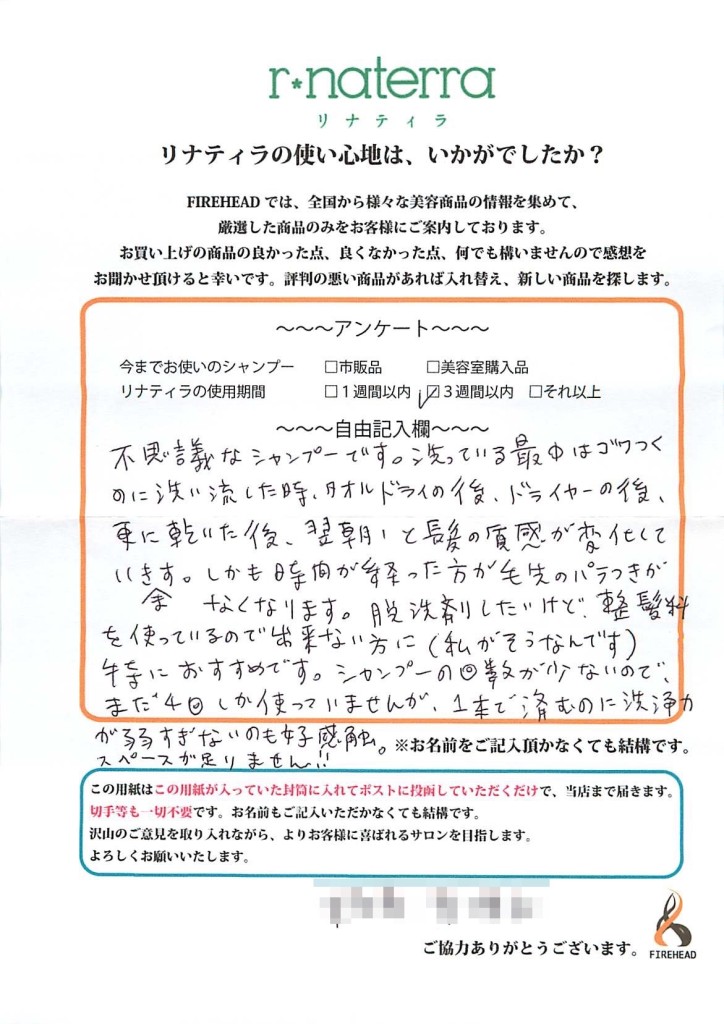 r*naterra
リナティラ
リナティラの使い心地は、いかがでしたか？
FIREHEADでは、全国から様々な美容商品の情報を集めて、
厳選した商品のみをお客様にご案内しております。
お買い上げの商品の良かった点、良くなかった点、何でも構いませんので感想を
お聞かせ頂けると幸いです。評判の悪い商品があれば入れ替え、新しい商品を探します。
〜〜〜アンケート〜〜〜
今までお使いのシャンプー □市販品 □美容室購入品
リナティラの使用期間 □１週間以内 ☑３週間以内 □それ以上
〜〜〜自由記入欄〜〜〜
不思議なシャンプーです。洗っている最中はゴワつく
のに洗い流した時、タオルドライの後、ドライヤーの後、
更に乾いた後、翌朝いと髪の質感が変化して
いきます。しかも時間が経った方が毛先のパラつきが
余 なくなります。脱洗剤したいけど、整髪料
を使っているので出来ない方に（私がそうなんです）
特におすすめです。シャンプーの回数が少ないので、
まだ4回しか使っていませんが、1本で済むのに洗浄力
が弱すぎないのも好感触。※お名前をご記入頂かなくても結構です。
スペースが足りません!!
この用紙はこの用紙が入っていた封筒に入れてポストに投函していただくだけで、当店まで届きます。
切手等も一切不要です。お名前もご記入いただかなくても結構です。
沢山のご意見を取り入れながら、よりお客様に喜ばれるサロンを目指します。
よろしくお願いいたします。
ご協力ありがとうございます。
FIREHEAD